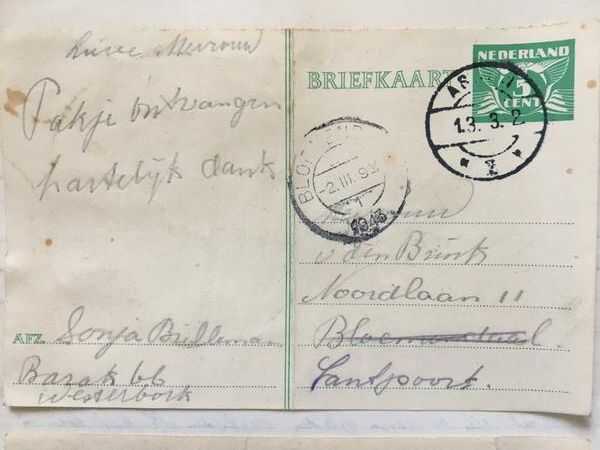 Lieve Mevrouw
Pakje ontvangen
hartelijk dank
AFZ. Sonja Bülleman
Barak 66
Westerbork
BRIEFKAART
NEDERLAND
5
CENT
1.3. 3. 2
2
BLOEMEND
-2.III.9
1
1943
v den Brink
Noordlaan 11
Bloemendaal.
Santpoort.